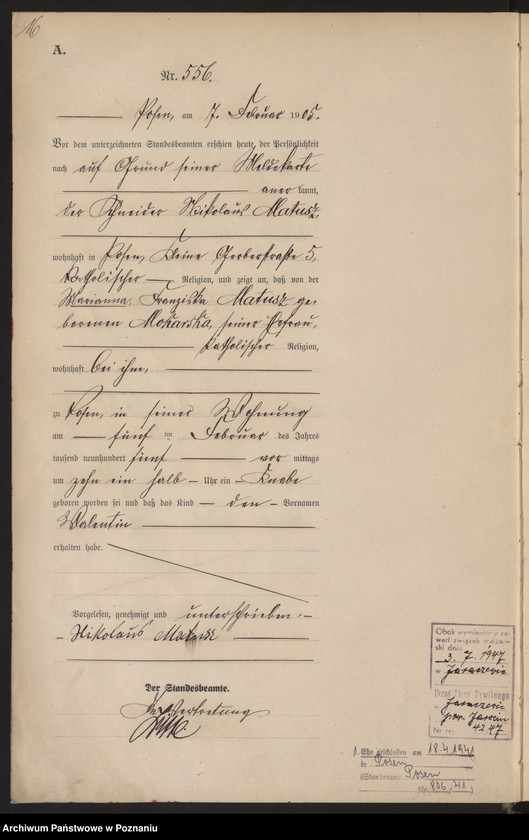 16
A.
Nr. 556.
Posen, am 7. Februar 1905.
Vor dem unterzeichneten Standesbeamten erschien heute, der Persönlichkeit
nach auf Grund seiner Meldekarte
aner kannt,
der Schneider Nikolaus Matusz,
wohnhaft in Posen, Kleine Gerberstraße 5,
katholischer Religion, und zeigt an, daß von der
Marianna Franziska Matusz ge-
borenen Mokarska, seiner Ehefrau,
katholischer Religion,
wohnhaft bei ihm,
zu Posen, in seiner Wohnung
am fünf ten Februar des Jahres
tausend neunhundert fünf vor mittags
um zehn ein halb Uhr ein Knabe
geboren worden sei und daß das Kind den Vornamen
Valentin
erhalten habe.
Vorgelesen, genehmigt und unterschrieben.
Nikolaus Matusz
Der Standesbeamte.
In Vertretung
Obok wymieniony za-
warł związek małżeń-
ski dnia
3. 7. 1947
w Jaraczewie
Urząd Stanu Cywilnego
w Jaraczewie
pow. Jarocin
Nr rej. 42/47
1. Ehe geschlossen am 18.4.1941
in Posen
(Standesamt Posen
Nr. 806/41)
Archiwum Państwowe w Poznaniu